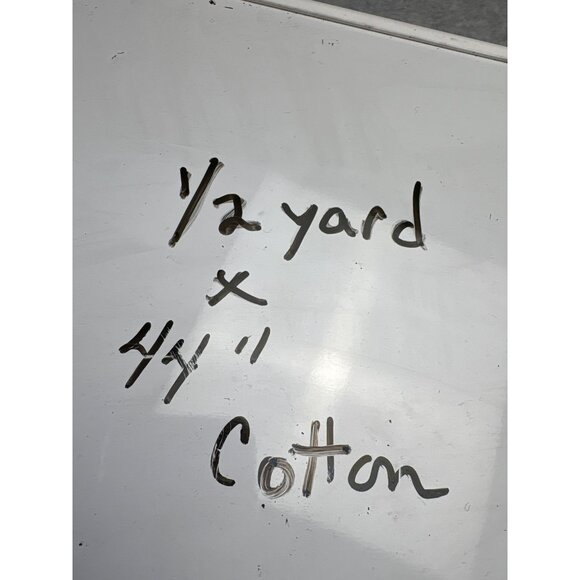 1/2 yard
x
44"
Cotton